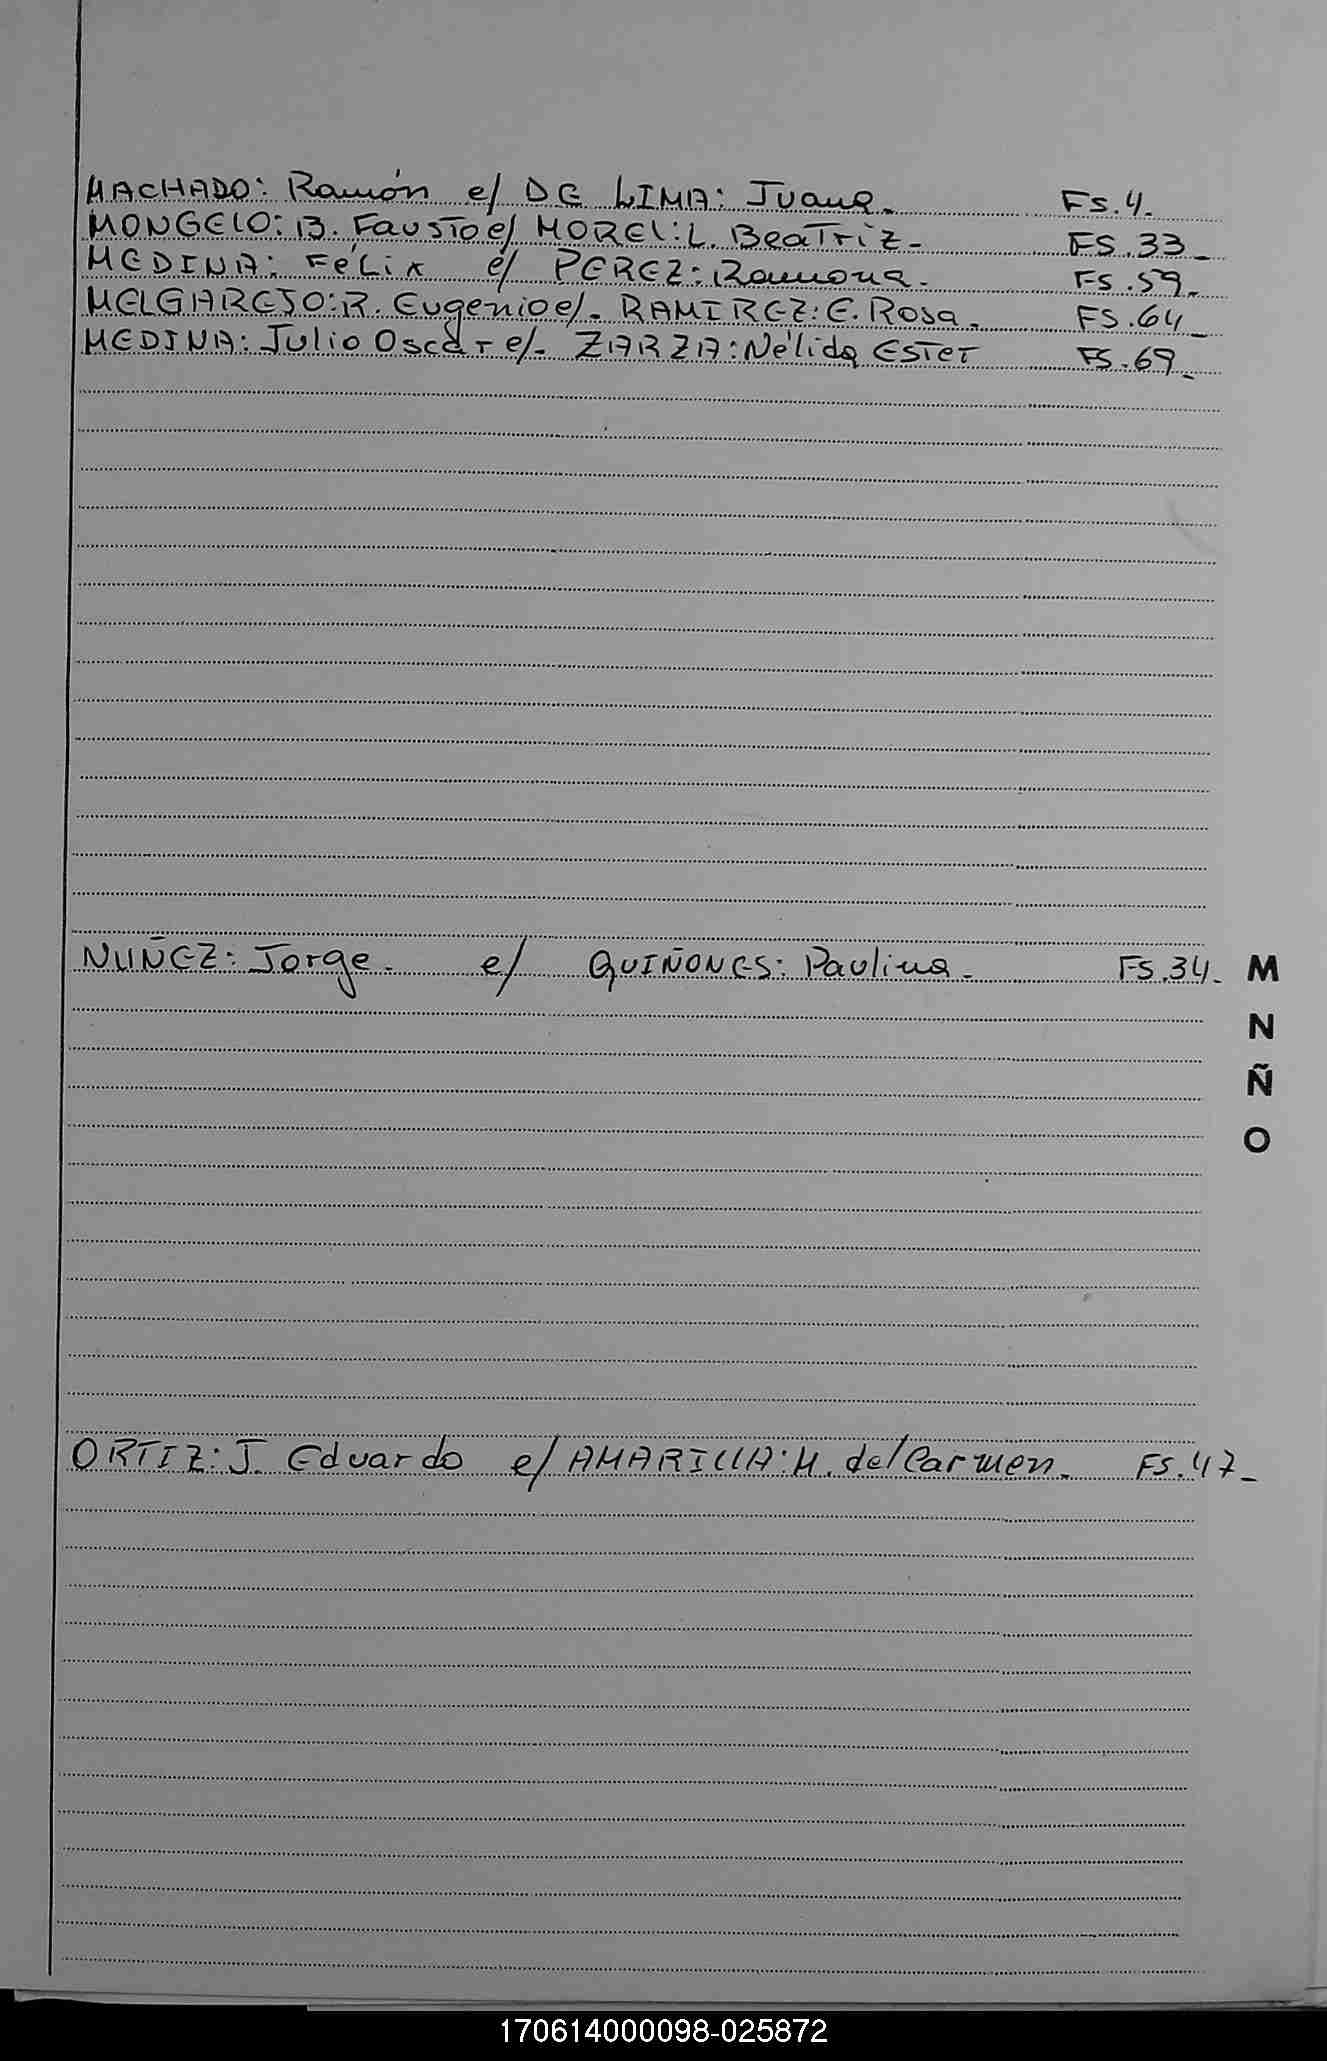 MACHADO: Ramón e/ DE LIMA: Juana. Fs.4.
MONGELO: B. Fausto e/ MOREL: L. Beatriz. Fs.33
MEDINA: Félix e/ PEREZ: Ramona. Fs.59.
MELGAREJO: R. Eugenio e/. RAMIREZ: E. Rosa. Fs.64
MEDINA: Julio Oscar e/. ZARZA: Nélida Ester Fs.69
NUÑEZ: Jorge. e/ QUIÑONES: Paulina. Fs.34.
M
N
Ñ
O
ORTIZ: J. Eduardo e/ AMARILLA: M. del Carmen. Fs.47
170614000098-025872